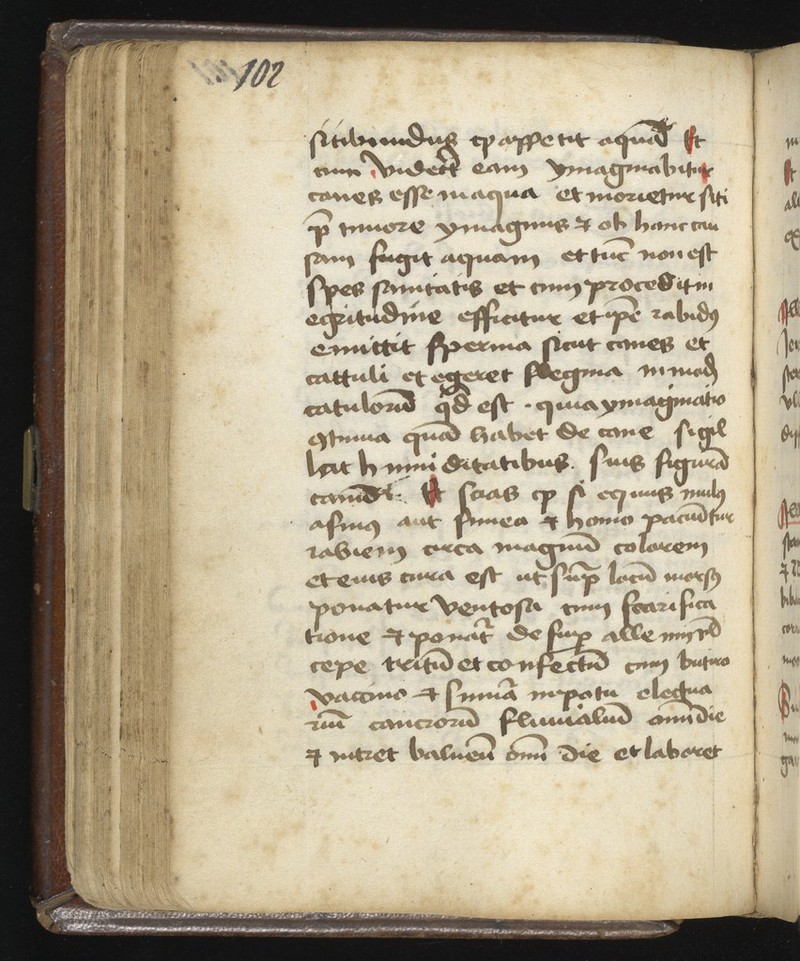 102
sitibundus ꝙ appetit aquā Et
cum vider̄t eam ymaginabitur
canes esse in aqua et morietur siti
p̄ timore ymaginis ⁊ ob hanc cau
sam fugit aquam et tūc non est
spes sanitatis et cum procedit in
egritudine efficitur et ip̄e rabidꝰ
emittit sperma sicut canes et
cattuli et egeret flegma in mod̄
catulorū qd̄ est · quia ymaginatio
ꝯtinua quā habet de cane sigil
lat humiditatibus. suis figurā
canid̄. Et scias ꝙ si equus mulꝰ
asinꝰ aut simea ⁊ homo paciūtur
rabiem circa magnū colorem
et eius cura est ut sup̄ locū morsꝰ
ponatur ventosa cum scarifica
tione ⁊ ponat̄ de sup̄
cepe tritū et confectū cum butiro
vaccino ⁊ sumat̄ in potu electua
riū cancrorū fluvialiū omī die
⁊ intret balneū omī die et laboret